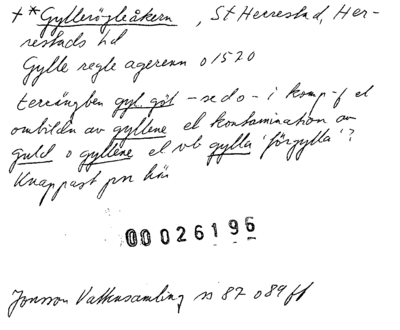 †*Gyllerögleåkern, St Herrestad, Her-
restads hd
Gylle regle agerenn o 1520
terrängben gyl. göl - se do - i komp-f el
ombildn av gyllene el kontamination av
guld o gyllene el vb gylla 'förgylla'?
Knappast pn här
00026196
Jonsson Vattensamling ss 87 o 89 ff